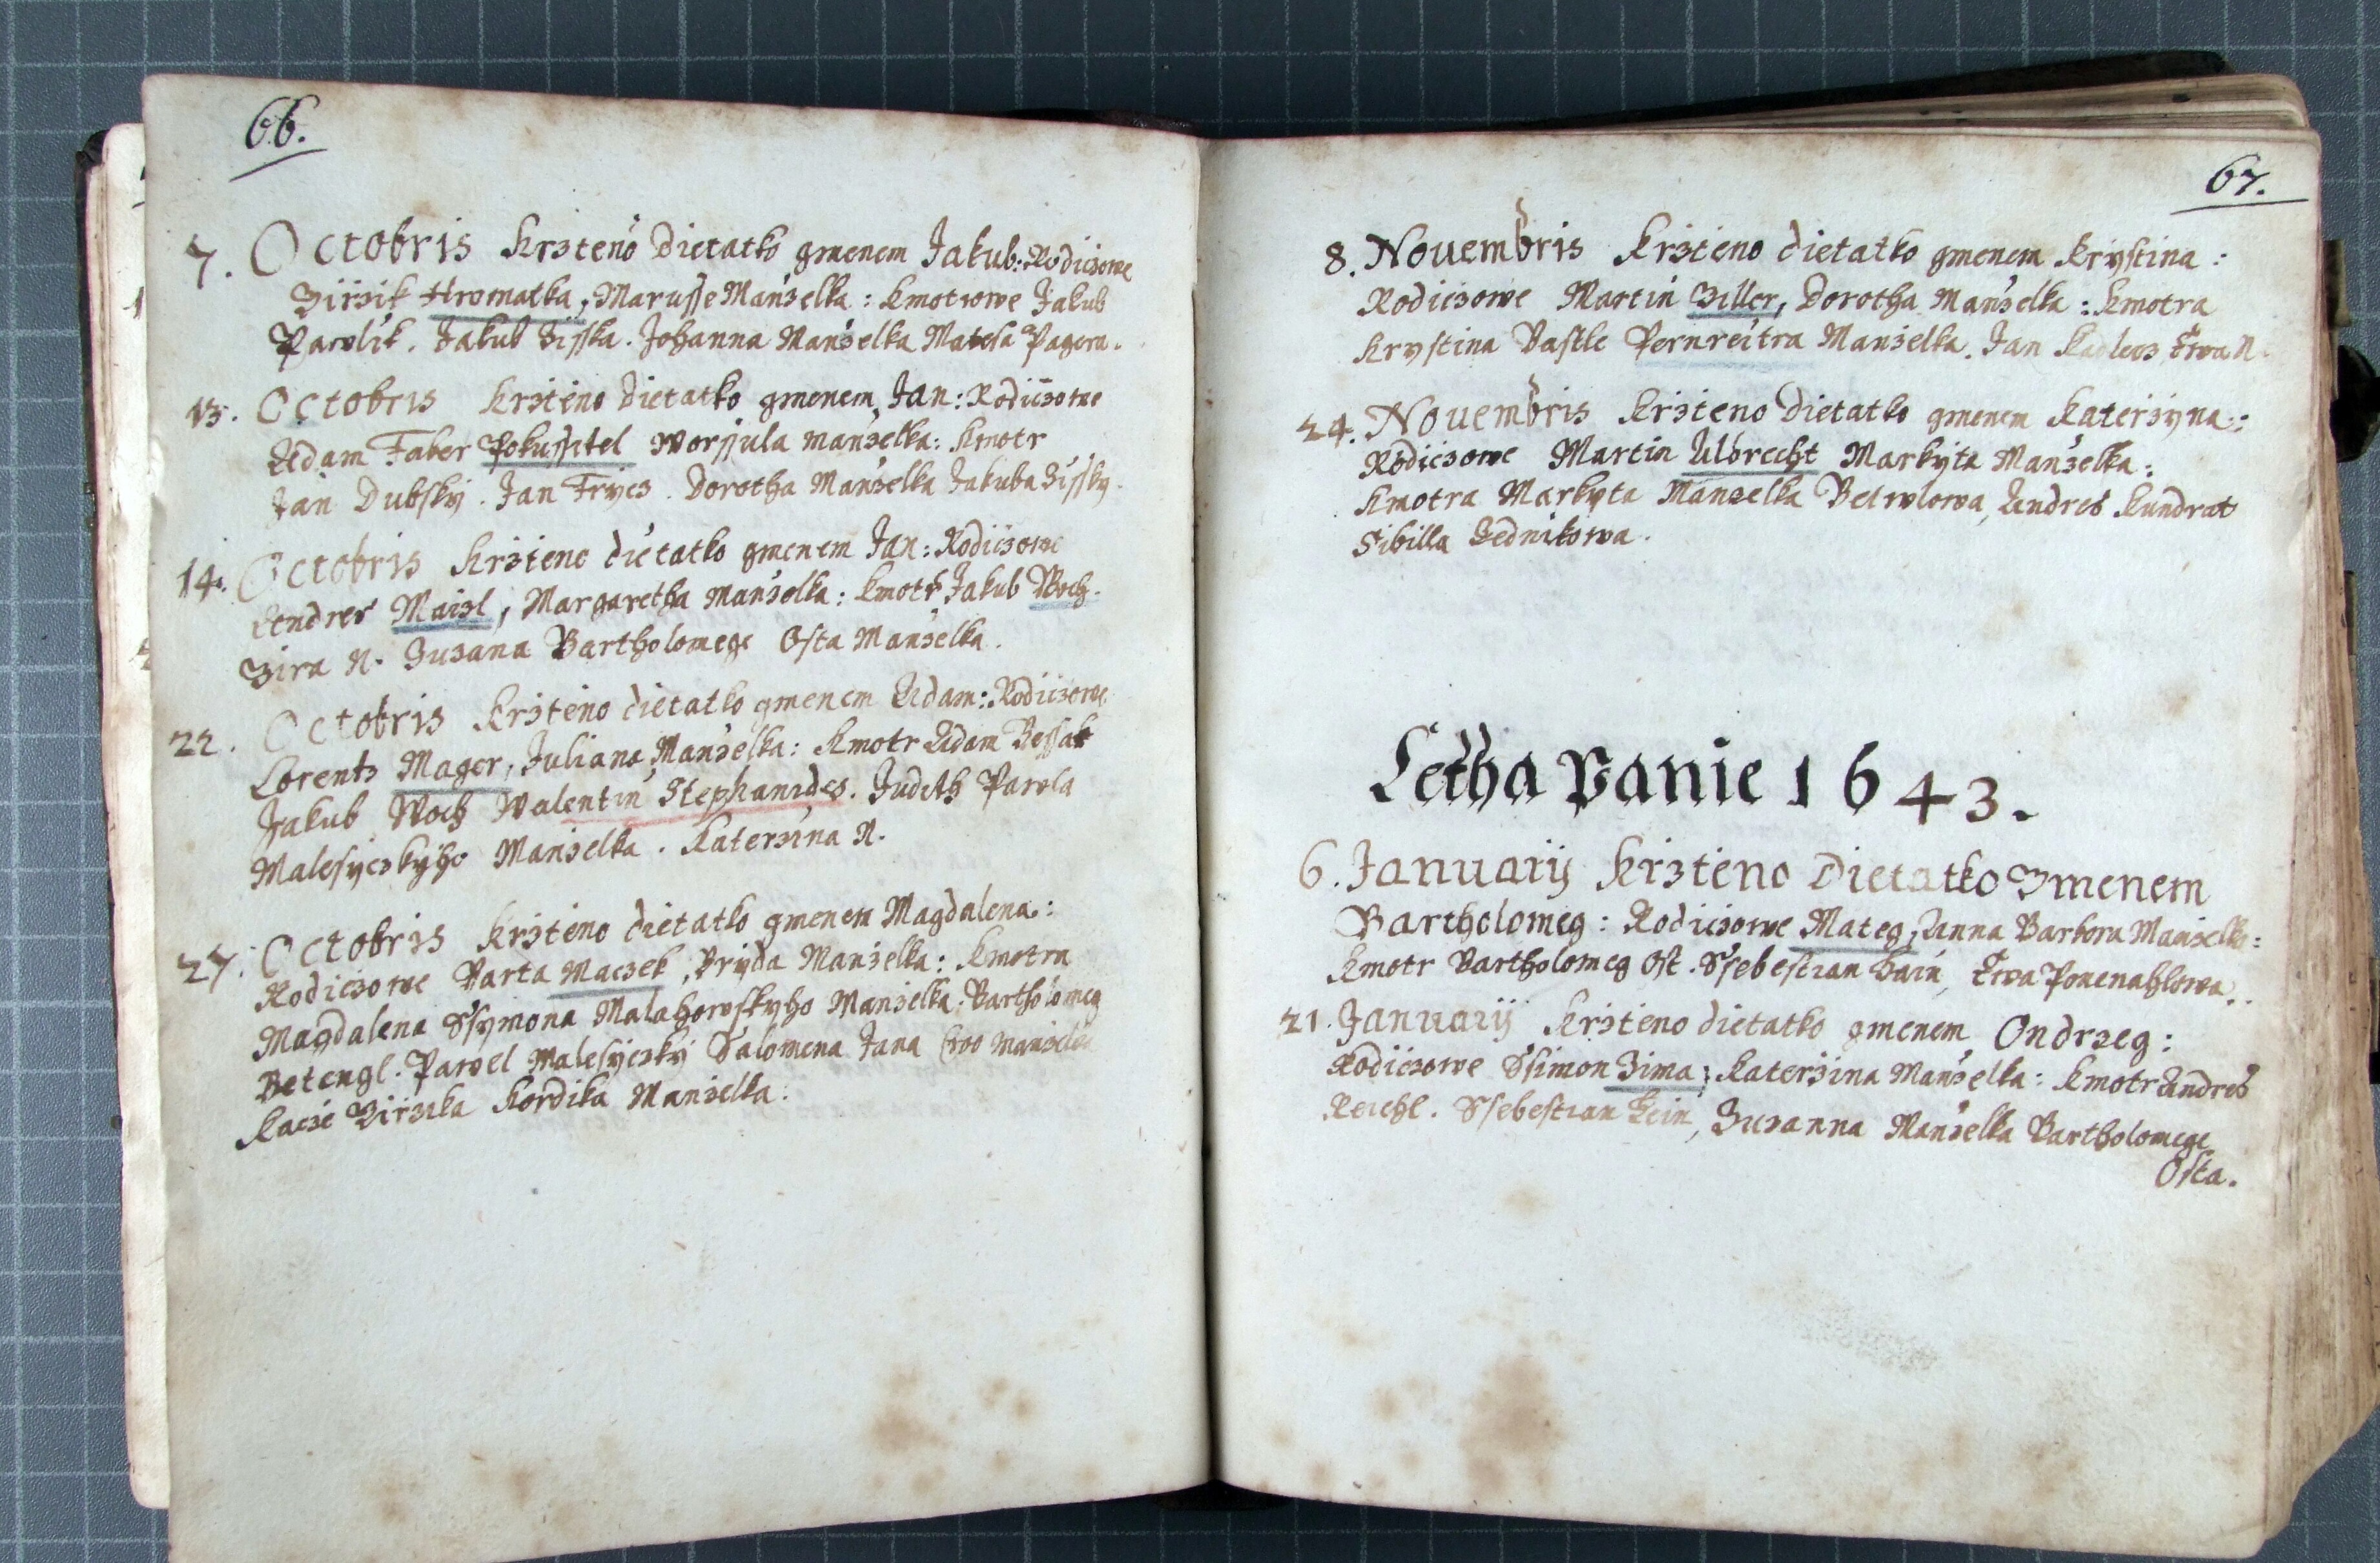 66.
7. Octobris Krzteno Dietatko gmenem Jakub: Rodiczowe
Jirzik Hromatka, Marusse Manzelka: Kmotrowe Jakub
Pawlik. Jakub Zisska. Johanna Manzelka Matesa Pagera.
13. Octobris Krzteno Dietatko gmenem Jan: Rodiczowe
Adam Faber Pokussitel Worssula manzelka: Kmotr
Jan Dubsky. Jan Frycz. Dorotha Manzelka Jakuba Zissky.
14. Octobris Krzteno dietatko gmenem Jan: Rodiczowe
Andres Maizl, Margaretha manzelka: Kmotr Jakub Woch.
Jira N. Zuzana Bartholomege Osta Manzelka.
22. Octobris Krzteno dietatko gmenem Adam: Rodiczowe
Lorentz Mager, Juliana Manzelka: Kmotr Adam Bessak
Jakub Woch Walentin Stephanides. Judith Pawla
Malesyczkyho Manzelka. Katerzina N.
27. Octobris Krzteno dietatko gmenem Magdalena:
Rodiczowe Barta Maczek, Bryda Manzelka: Kmotra
Magdalena Ssymona Malahowskyho Manzelka. Bartholomeg
Betengl. Pawel Malesyczky Salomena Jana manzelka
Kacze Jirzika Kordika Manzelka.
67.
8. Nouembris Krzteno dietatko gmenem Krystina:
Rodiczowe Martin Ziller, Dorotha Manzelka: Kmotra
Krystina Bastle Pernreitra Manzelka. Jan Kadlecz Ewa N.
24. Nouembris Krzteno Dietatko gmenem Katerzyna:
Rodiczowe Martin Albrecht Markyta Manzelka:
Kmotra Markyta Manzelka Andres Kundrat
Sibilla Zednikowa.
Letha Panie 1643.
6. Januarij Krzteno Dietatko Jmenem
Bartholomeg: Rodiczowe Mateg, Anna Barbora Manzelka:
Kmotr Bartholomeg Ost. Ssebestian Hain, Ewa
21. Januarij Krzteno dietatko gmenem Ondrzeg:
Rodiczowe Ssimon Zima; Katerzina Manzelka: Kmotr Andres
Reichl. Ssebestian Hein, Zuzanna Manzelka Bartholomege
Osta.